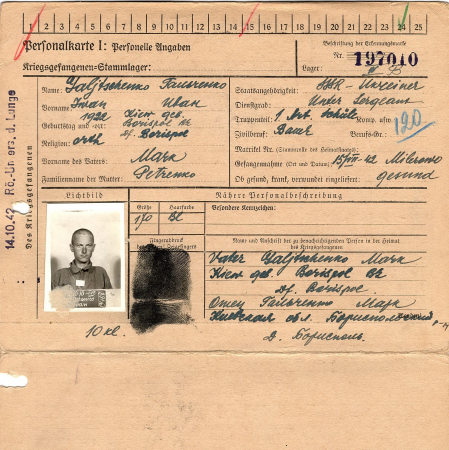 1 2 3 4 5 6 7 8 9 10 11 12 13 14 15 16 17 18 19 20 21 22 23 24 25
Personalkarte I: Personelle Angaben
Kriegsgefangenen-Stammlager:
Beschriftung der Erkennungsmarke
Nr. 197010
Lager:
Name: Galjtschenko Гальченко
Vorname: Iwan Иван
Geburtstag und -ort: 1922 Kiew geb.
Borispol
df. Borispol
Religion: orth
Vorname des Vaters: Mark
Familienname der Mutter: Petrenko
Staatsangehörigkeit: Ukrainer
Dienstgrad: Unter Sergeant
Truppenteil: 1. Art. Schül Komp. usw.:
Zivilberuf: Bauer Berufs-Gr.: 120
Matrikel Nr. (Stammrolle des Heimatstaates):
Gefangennahme (Ort und Datum): 15/VII-42 Milerowo
Ob gesund, krank, verwundet eingeliefert: gesund
14.10.42 Rö.-Unters. d. Lunge
Des Kriegsgefangenen
Lichtbild
Nähere Personalbeschreibung
Größe Haarfarbe Besondere Kennzeichen:
170 Bl
Fingerabdruck
Name und Anschrift der zu benachrichtigenden Person in der Heimat
des Kriegsgefangenen
Vater Galjtschenko Mark
Kiew geb. Borispol
df. Borispol
Отец Гальченко Марк
Киевская обл. Бориспольский р-н
д. Борисполь
10 kl.